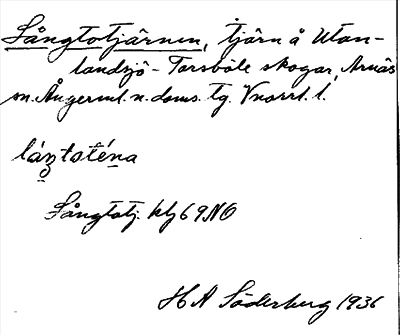 Långtotjärnen, tjärn å Utan-
landsjö - Torsböle skogar, Arnäs
sn. Ångerml. n. doms. tg. Vnorrl. l.
láŋtoténa
Långtotj. klj 69NO
H A Söderberg 1936